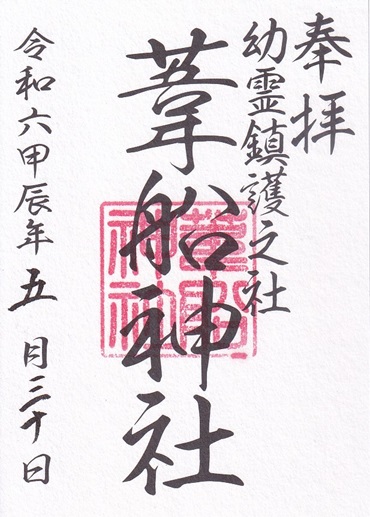 奉拝
幼霊鎮護之社
葦船神社
葦船神社
令和六甲辰年五月三十日